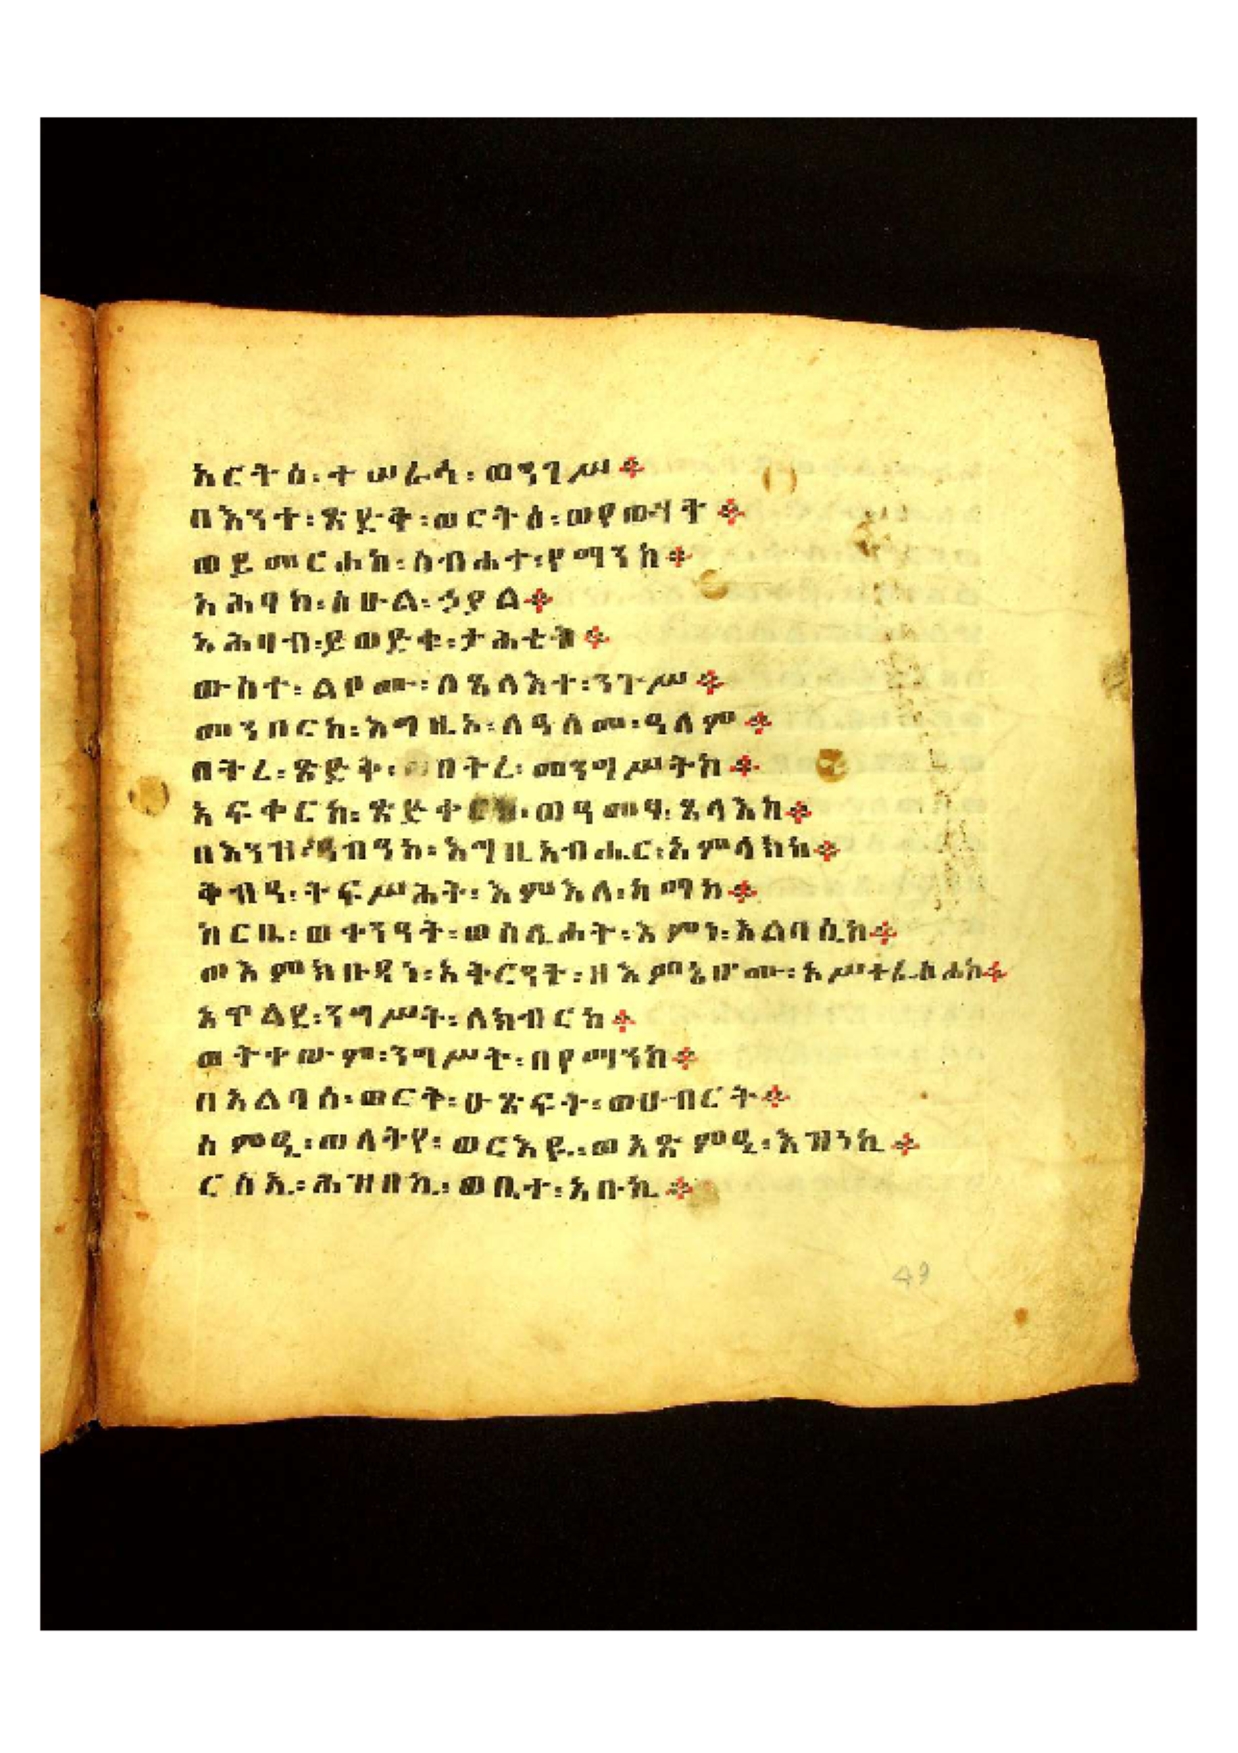 አርትዕ፡ተሠራሓ፡ወንገሥ፨
በእንተ፡ጽድቅ፡ወርትዕ፡ወየውሃት፨
ወይመርሐከ፡ስብሐተ፡የማንከ፨
አሕፃከ፡ስሁል፡ኃያል፨
አሕዛብ፡ይወድቁ፡ታሕቴከ፨
ውስተ፡ልቦሙ፡ለጸላእተ፡ንጉሥ፨
መንበርከ፡እግዚኦ፡ለዓለመ፡ዓለም፨
በትረ፡ጽድቅ፡ወበትረ፡መንግሥትከ፨
አፍቀርከ፡ጽድቀ፡ወዓመፃ፡ጸላእከ፨
በእንዝ፡ቀብዓከ፡እግዚአብሔር፡አምላክከ፨
ቅብዓ፡ትፍሥሕት፡እምእለ፡ከማከ፨
ከርቤ፡ወቀንዓት፡ወስሊሖት፡እምነ፡አልባሲከ፨
ወእምክቡዳነ፡አቅርንት፡ዘእምኔሆሙ፡አሥተፈሥሐከ፨
አዋልደ፡ንግሥት፡ለክብርከ፨
ወትቀውም፡ንግሥት፡በየማንከ፨
በአልባሰ፡ወርቅ፡ሁጽፍት፡ወሁብርት፨
ስምዒ፡ወለትየ፡ወርእዪ፡ወአጽምዒ፡እዝነኪ፨
ርስዒ፡ሕዝበኪ፡ወቤተ፡አቡኪ፨
49